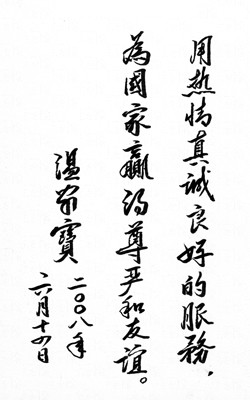 用热情真诚良好的服務，
為國家贏得尊严和友谊。
温家寶
二〇〇八年
六月十四日